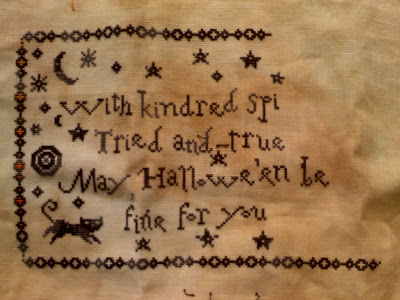 with kindred spi
Tried and true
May Hallowe'en be
fine for you